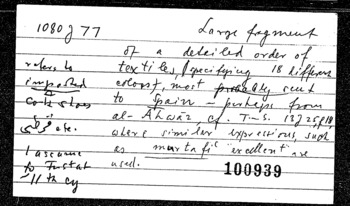 1080 J 77
Large fragment
of a detailed order of
textiles, specifying 18 different
colors, most probably sent
to Spain – perhaps from
al-Ahwāz, cf. T-S. 13 J 25 f 18
where similar expressions, such
as murtafi' "excellent" are
used.
refers to
imported
etc.
I assume
to Fustat
~ 11th cy
100939